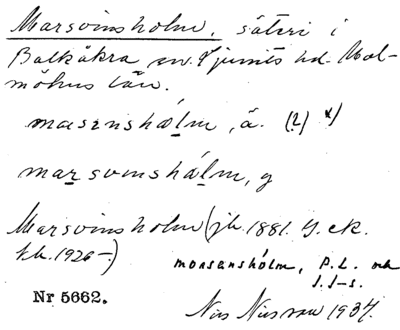 Marsvinsholm, säteri i
Balkåkra sn. Ljunits hd. Mal-
möhus län.
masenshólm, ä. (2) x)
marsvinshálm, y
Marsvinsholm (jb. 1881. G. ek.
kb. 1926-)
monsenshólm, P.L. och
J.J-s.
Nr 5662.
Nils Nilsson 1937.